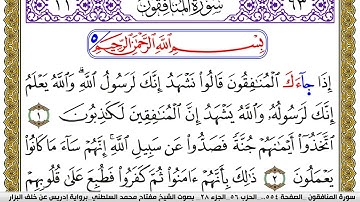 ١١ سورة المنافقون ٦٣
بِسْمِ اللَّهِ الرَّحْمَٰنِ الرَّحِيمِ
إِذَا جَآءَكَ الْمُنَافِقُونَ قَالُوا نَشْهَدُ إِنَّكَ لَرَسُولُ اللَّهِ وَاللَّهُ يَعْلَمُ
إِنَّكَ لَرَسُولُهُ وَاللَّهُ يَشْهَدُ إِنَّ الْمُنَافِقِينَ لَكَاذِبُونَ ١
اتَّخَذُوا أَيْمَانَهُمْ جُنَّةً فَصَدُّوا عَن سَبِيلِ اللَّهِ إِنَّهُمْ سَآءَ مَا كَانُوا
يَعْمَلُونَ ٢ ذَٰلِكَ بِأَنَّهُمْ ءَامَنُوا ثُمَّ كَفَرُوا فَطُبِعَ عَلَىٰ قُلُوبِهِمْ
سورة المنافقون . الصفحة ٥٥٤ . الحزب ٥٦ . الجزء ٢٨ . بصوت الشيخ مفتاح محمد السلطني برواية إدريس عن خلف البزار